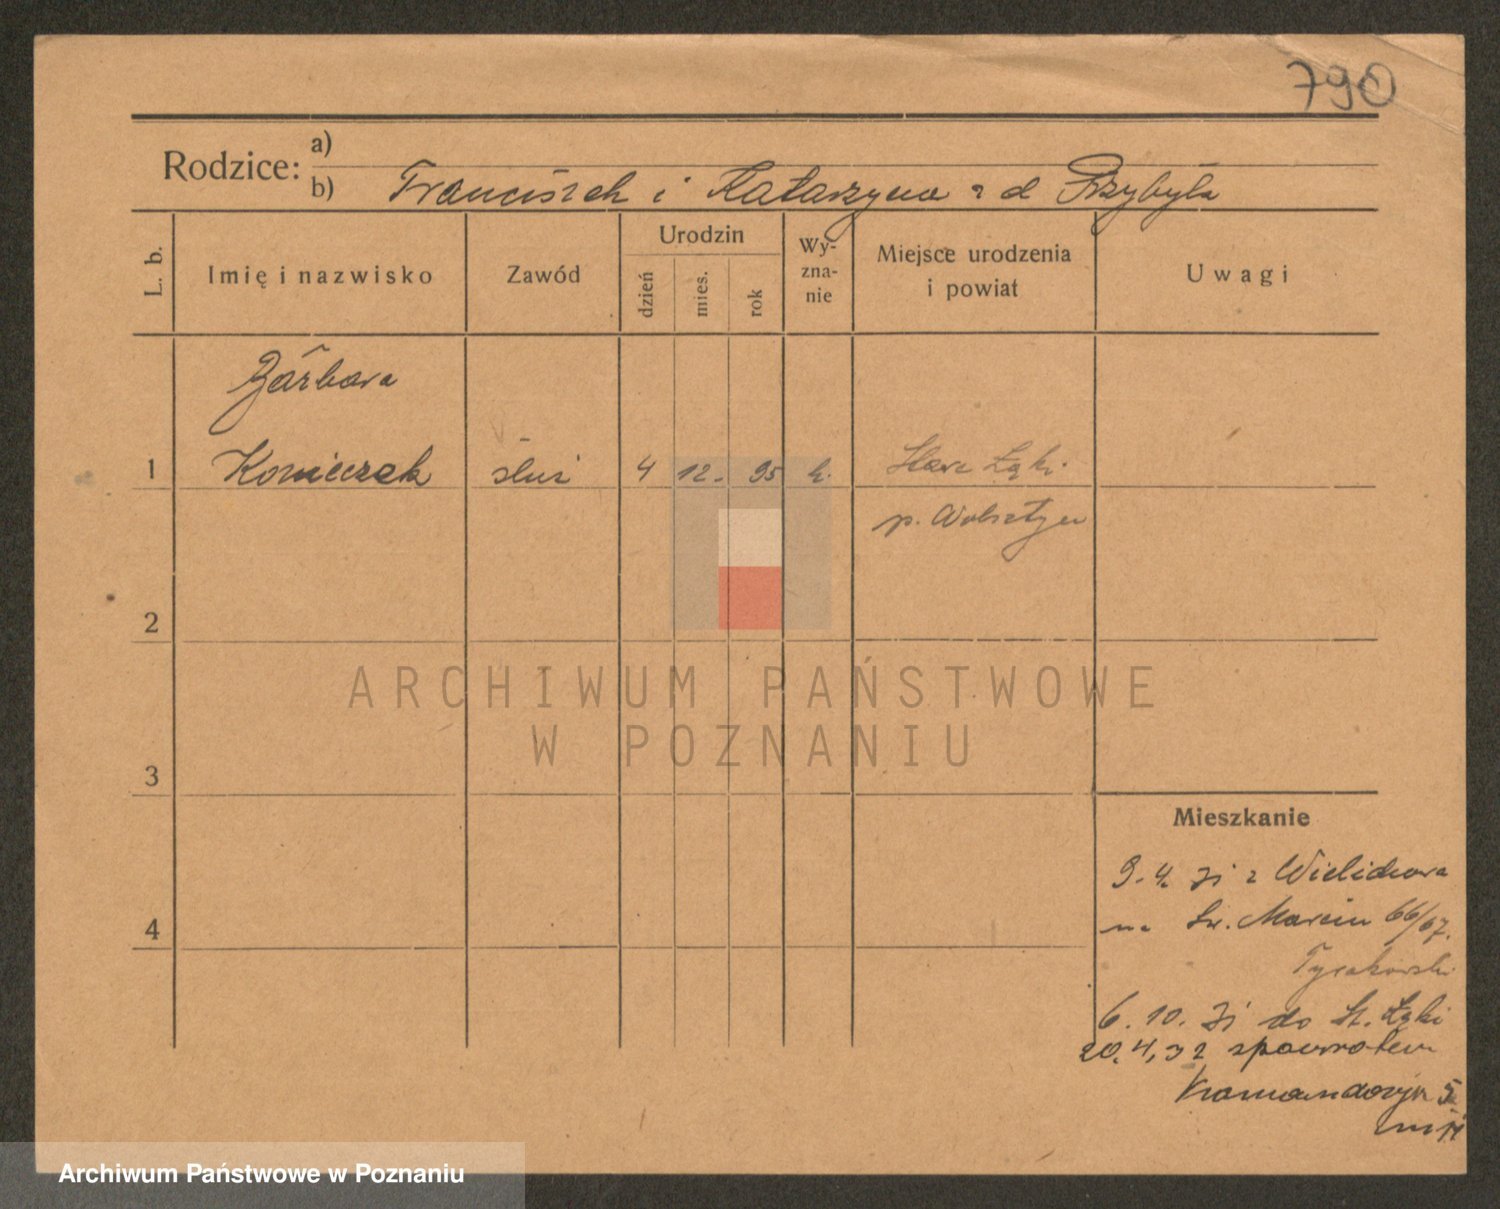 790
Rodzice: a)
b) Franciszek i Katarzyna z d Przybyła
L. b.
Imię i nazwisko
Zawód
Urodzin
dzień
mies.
rok
Wy-
zna-
nie
Miejsce urodzenia
i powiat
Uwagi
Barbara
1 Konieczek służ 4 12. 95 k. Stare Łąki
p. Wolsztyn
2
3
4
Mieszkanie
9.4. 31 z Wielichowa
na Św. Marcin 66/67.
6.10. 31 do St. Łąki
20.4,32 spowrotem
Komandorja 5
ARCHIWUM PAŃSTWOWE
W POZNANIU
Archiwum Państwowe w Poznaniu